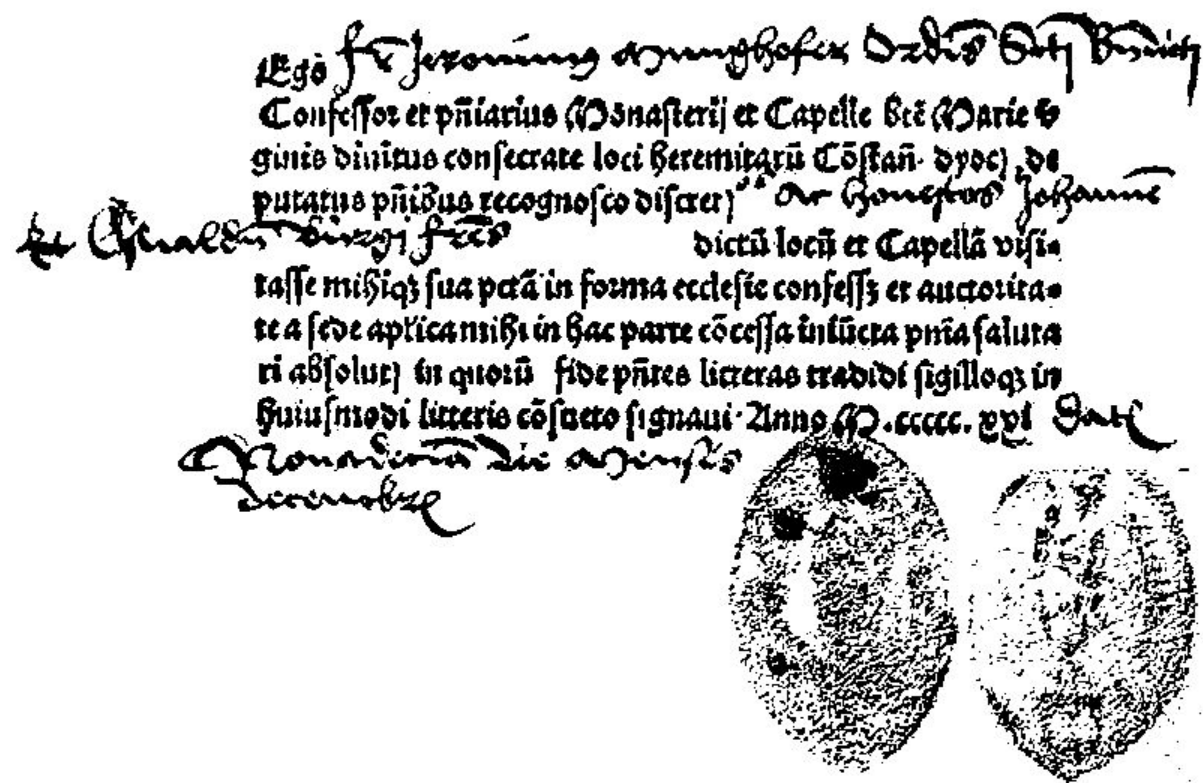 Egō fr̄ Jeronimus Munghofer Ordīs Sctī
Confessor et pn̄iarius Mōnasterij et Capelle btē Marie v̓
ginis diuitus consecrate loci heremitarū Cōstan̄. dyoc̨ de
putatus pn̄ibus recognosco discret̨os Ac honestos Johannē
Et Oswaldū fr̄es dictū locū et Capellā visi-
tasse mihiq̨ sua pctā in forma ecclesie confessꝫ et auctorita-
te a sede aplica mihi in hac parte cōcessa iniūcta pn̄ia saluta
ri absolut̨ in quorū fide pn̄tes litteras tradidi sigilloqꝫ in
huiusmodi litteris cōsueto signaui. Anno M.ccccc.xxi Dat̄
die Mensis
decembr̄